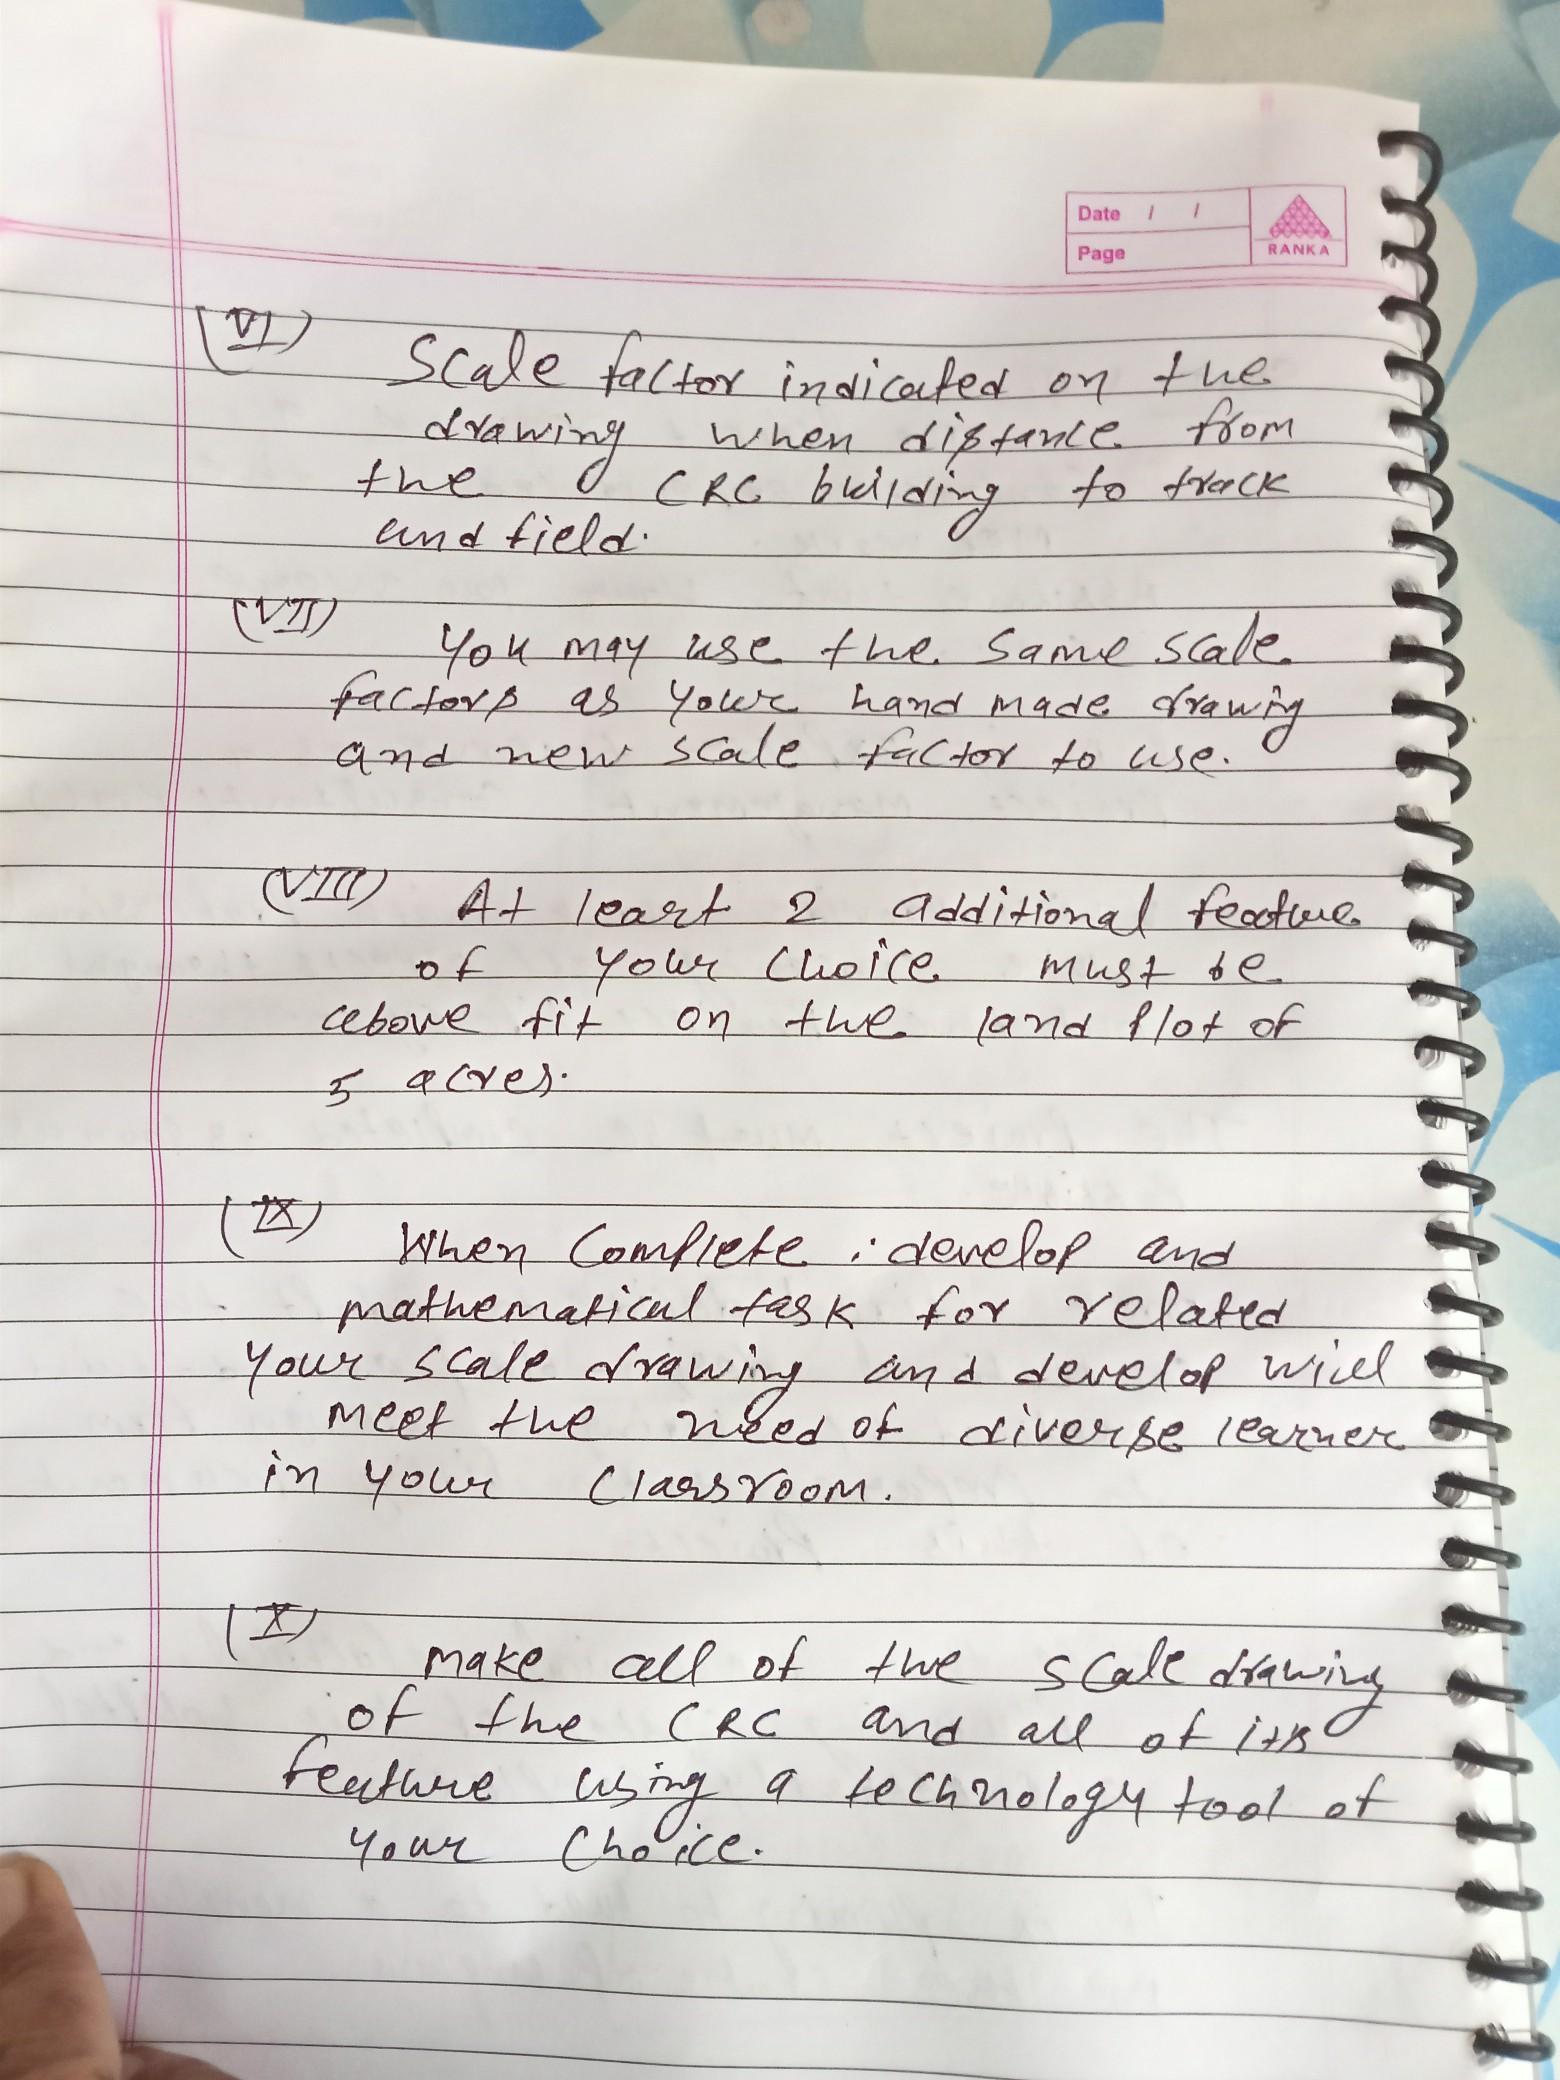 Date / /
Page
RANKA
(VI)
Scale factor indicated on the
drawing when distance from
the CRC building to track
and field.
(VII)
You may use the same scale
factors as your hand made drawing
and new scale factor to use.
(VIII) At least 2 additional feature
of your choice must be
above fit on the land plot of
5 acres.
(IX)
When complete : develop and
mathematical task for related
your scale drawing and develop will
meet the need of diverse learner
in your classroom.
(X)
make all of the scale drawing
of the CRC and all of its
feature using a technology tool of
your choice.